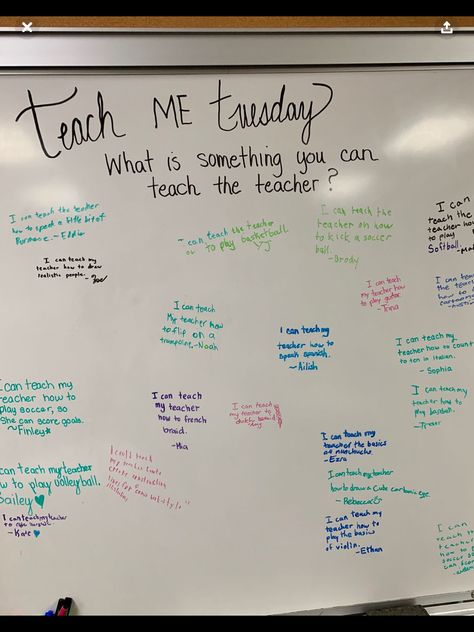 Teach ME Tuesday
What is something you can
teach the teacher?
I can teach the teacher
how to speak a little bit of
I can teach my
teacher how to draw
realistic people.
I can teach the teacher
to play basketball.
I can teach the
teacher on how
to kick a soccer
ball.
-Brody
I can
teach the
teacher how
to play
Softball.
I can teach
my teacher how
to play guitar.
I can teach
My teacher how
to flip on a
trampoline. -Noah
I can teach my
teacher how to
speak spanish.
~Ailish
I can teach my
teacher how to count
to ten in Italian.
-Sophia
I can teach my
teacher how to
play soccer, so
She can score goals.
~Finley*
I can teach
my teacher
how to french
braid.
-Mia
I can teach
my teacher to
I can teach my
teacher how to
play baseball.
-Trevor
I can teach my
teacher the basics
of nunchucks.
-Ezra
can teach my teacher
how to play volleyball.
Bailey♥
I can teach my teacher
-Kate♥
I can teach
my teacher
create
I can teach my teacher
how to draw a cute cartoonic eye.
-Rebecca
I can teach my
teacher how to
play the basics
of violin.
-Ethan
I can
teach